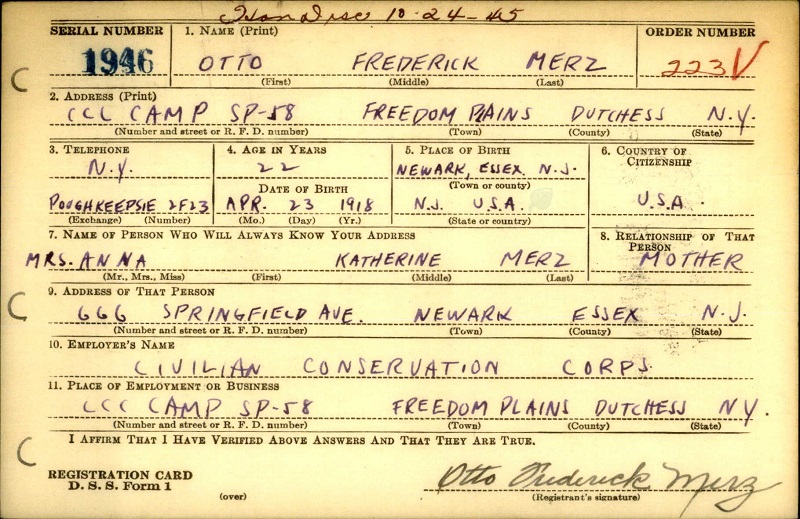 Hon Disc 10-24-45
SERIAL NUMBER 1. NAME (Print) ORDER NUMBER
1946 OTTO FREDERICK MERZ 223V
(First) (Middle) (Last)
2. ADDRESS (Print)
CCC CAMP SP-58 FREEDOM PLAINS DUTCHESS N.Y.
(Number and street or R. F. D. number) (Town) (County) (State)
3. TELEPHONE 4. AGE IN YEARS 5. PLACE OF BIRTH 6. COUNTRY OF CITIZENSHIP
N.Y. 22 NEWARK, ESSEX N.J.
DATE OF BIRTH (Town or county)
POUGHKEEPSIE 2F23 APR. 23 1918 N.J. U.S.A. U.S.A.
(Exchange) (Number) (Mo.) (Day) (Yr.) (State or country)
7. NAME OF PERSON WHO WILL ALWAYS KNOW YOUR ADDRESS 8. RELATIONSHIP OF THAT PERSON
MRS. ANNA KATHERINE MERZ MOTHER
(Mr., Mrs., Miss) (First) (Middle) (Last)
9. ADDRESS OF THAT PERSON
666 SPRINGFIELD AVE. NEWARK ESSEX N.J.
(Number and street or R. F. D. number) (Town) (County) (State)
10. EMPLOYER'S NAME
CIVILIAN CONSERVATION CORPS.
11. PLACE OF EMPLOYMENT OR BUSINESS
CCC CAMP SP-58 FREEDOM PLAINS DUTCHESS NY.
(Number and street or R. F. D. number) (Town) (County) (State)
I AFFIRM THAT I HAVE VERIFIED ABOVE ANSWERS AND THAT THEY ARE TRUE.
REGISTRATION CARD
D. S. S. Form 1
(over)
Otto Frederick Merz
(Registrant's signature)